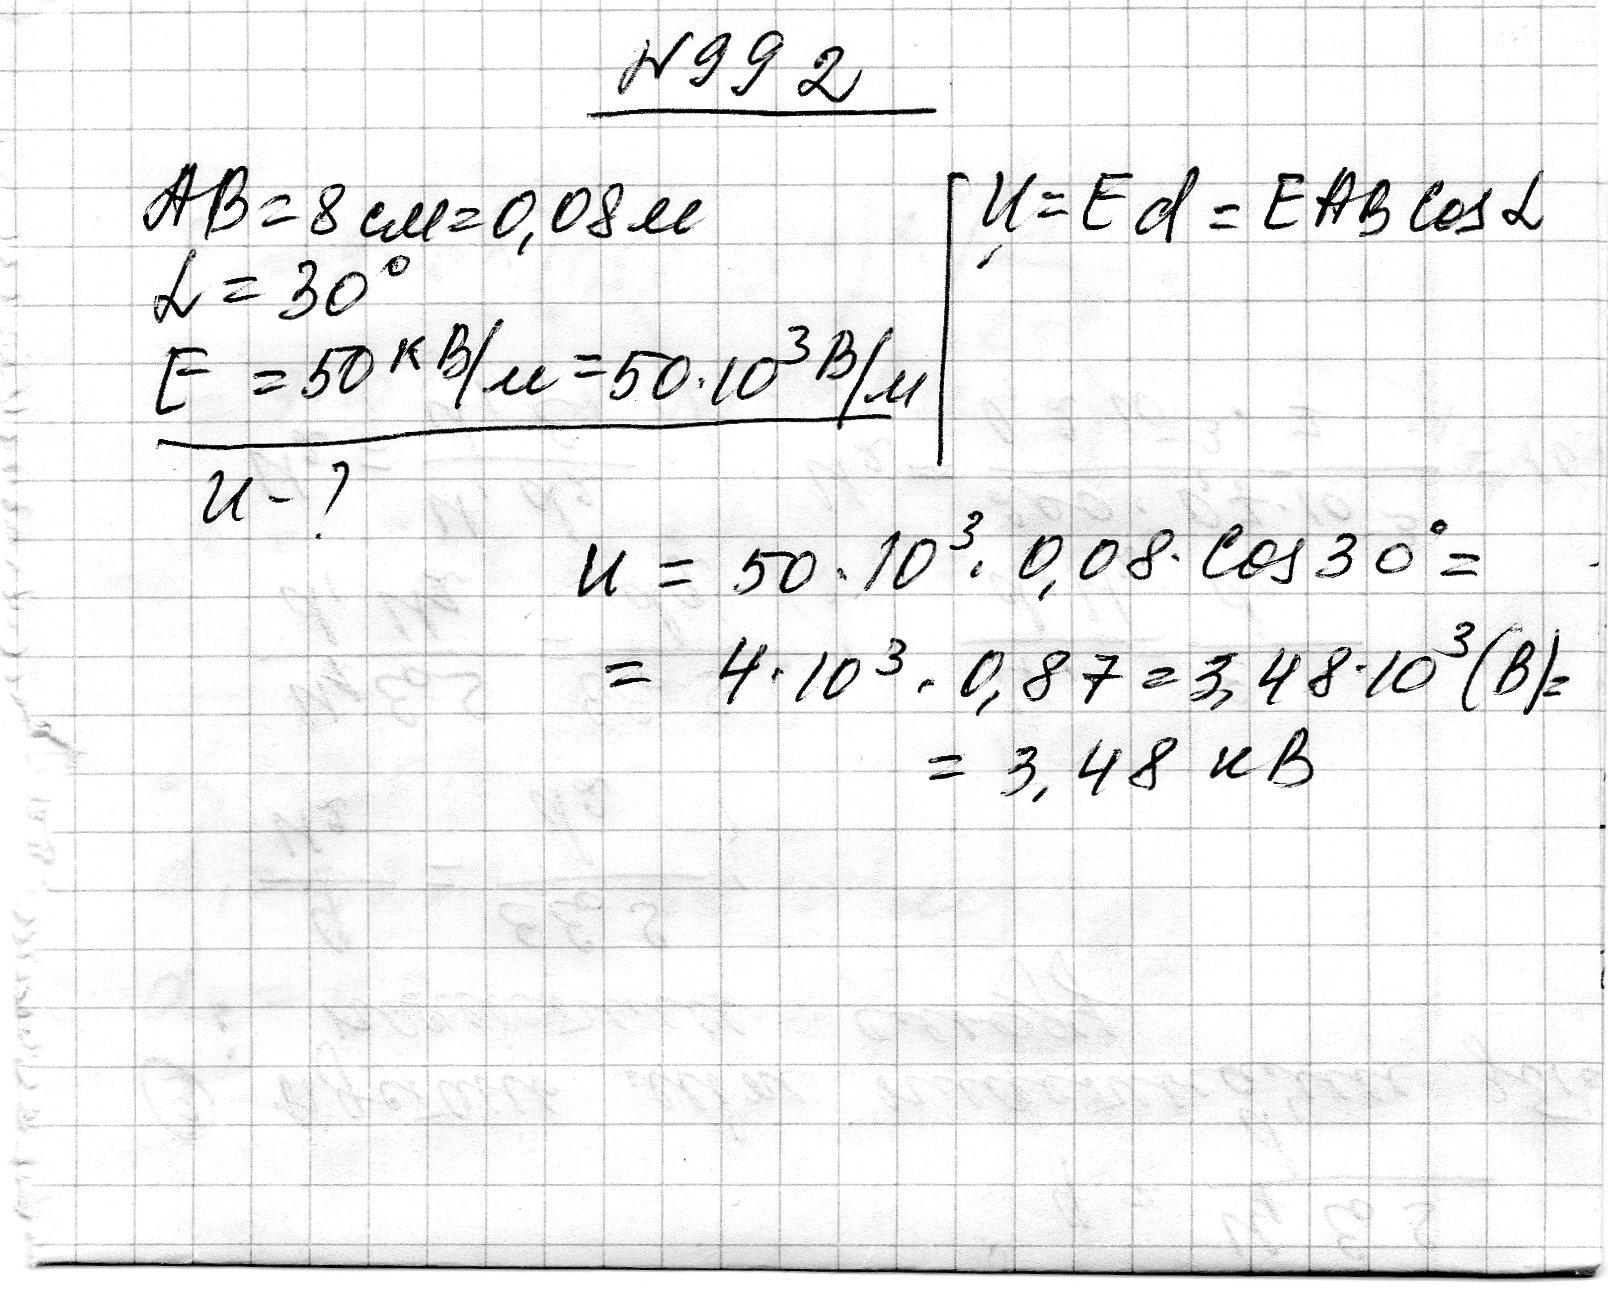 N 992
AB = 8 см = 0,08 м
α = 30°
E = 50 кВ/м = 50·10³ В/м
U - ?
U = Ed = EAB cos α
U = 50·10³·0,08·cos 30° =
= 4·10³·0,87 = 3,48·10³ (В) =
= 3,48 кВ